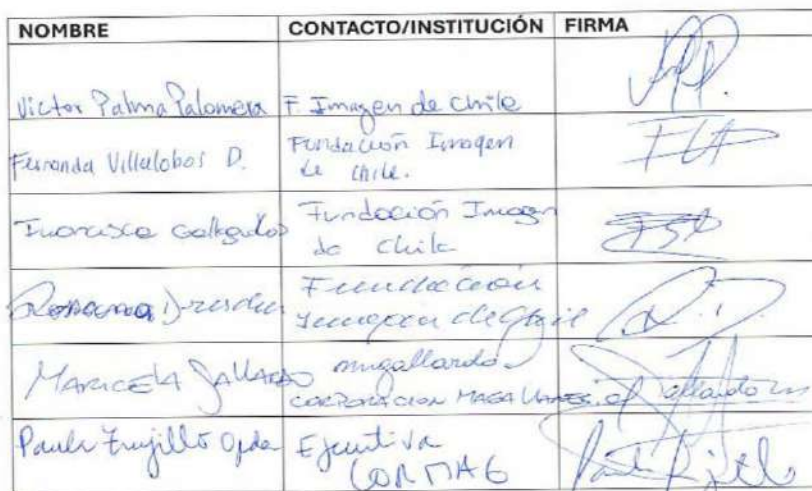 NOMBRE CONTACTO/INSTITUCIÓN FIRMA
Victor Palma Palomera F. Imagen de Chile
Fernanda Villalobos D. Fundación Imagen
de Chile.
Francisca Gallegos Fundación Imagen
de Chile
Fundación
Imagen de Chile
MARICELA GALLARDO mvgallardo
CORPORACION MAGALLANES
Paula Trujillo Ejecutiva
CORMAG